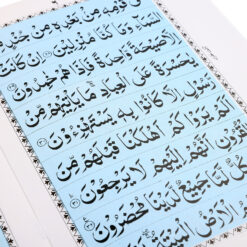 قَوْمِهٖ مِنْۢ بَعْدِهٖ مِنْ جُنْدٍ
السَّمَآءِ وَمَا كُنَّا مُنْزِلِيْنَ ۝ اِنْ كَانَتْ
اِلَّا صَيْحَةً وَّاحِدَةً فَاِذَا هُمْ خٰمِدُوْنَ ۝
يٰحَسْرَةً عَلَى الْعِبَادِ ۚ مَا يَاْتِيْهِمْ مِّنْ
رَّسُوْلٍ اِلَّا كَانُوْا بِهٖ يَسْتَهْزِءُوْنَ ۝
اَلَمْ يَرَوْا كَمْ اَهْلَكْنَا قَبْلَهُمْ مِّنَ
الْقُرُوْنِ اَنَّهُمْ اِلَيْهِمْ لَا يَرْجِعُوْنَ ۝
لَّمَّا جَمِيْعٌ لَّدَيْنَا مُحْضَرُوْنَ ۝
الْاَرْضُ الْمَيْتَةُ